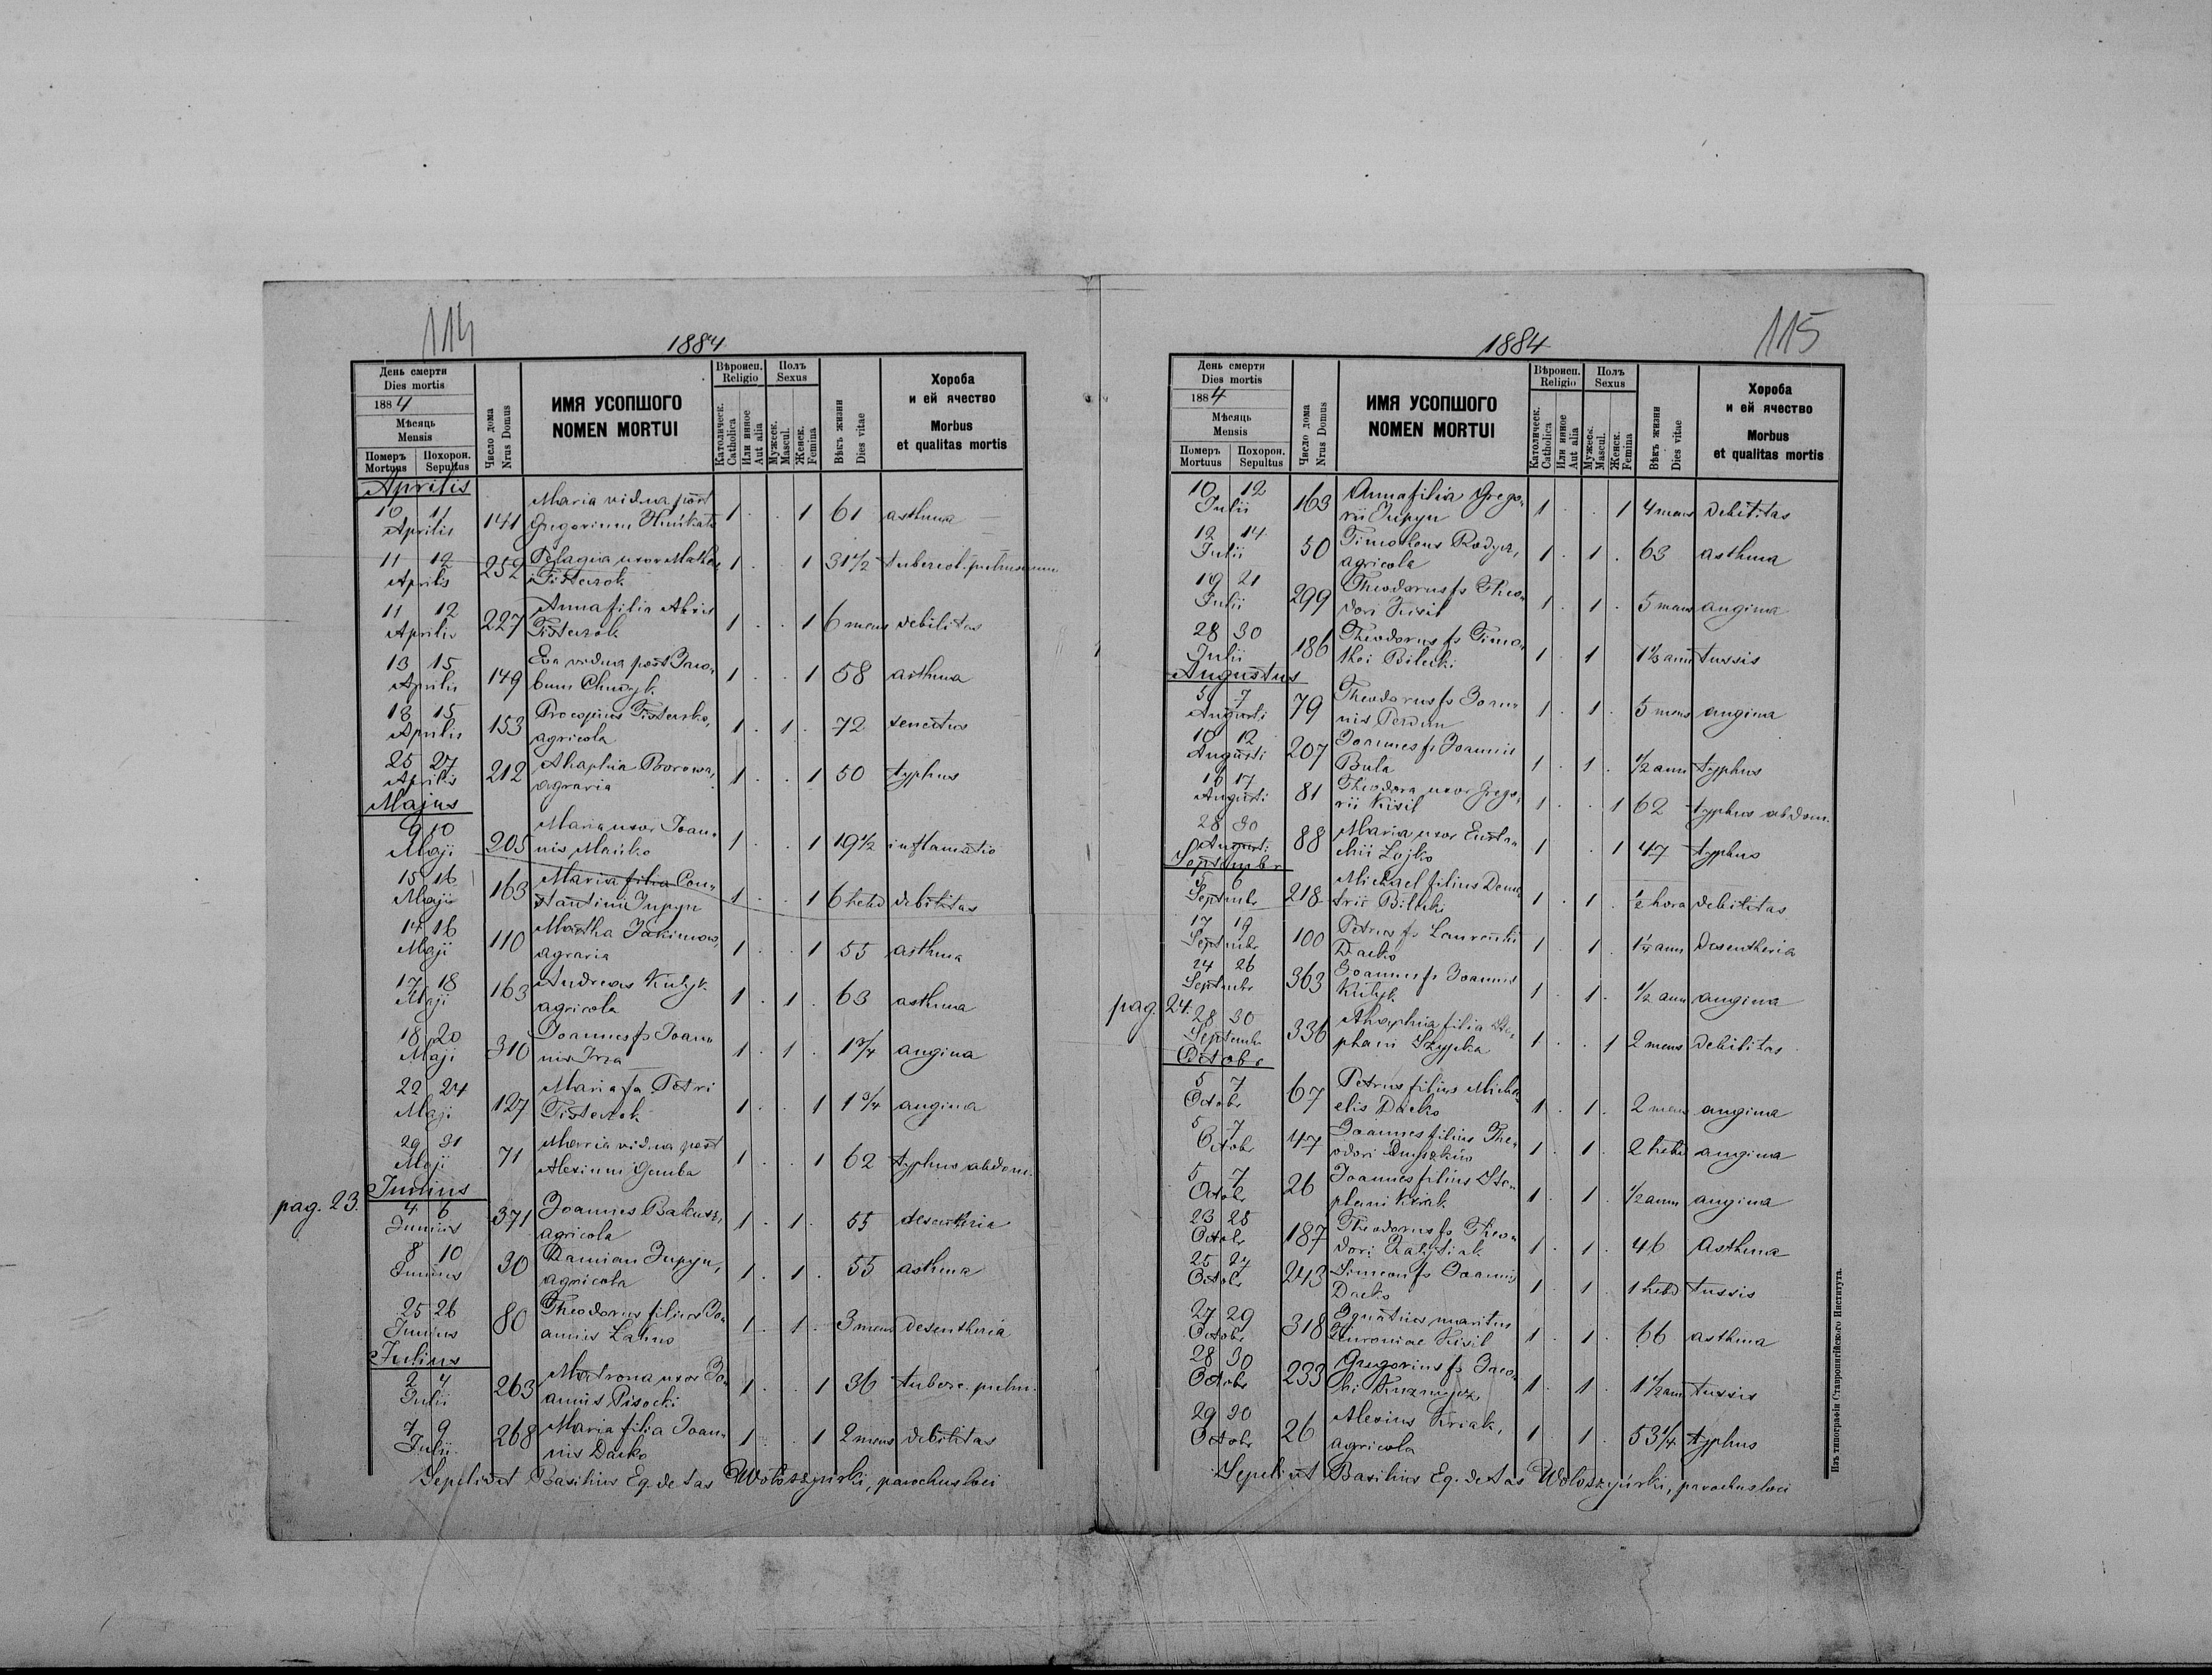 114
1884
День смерти
Dies mortis
1884
Мѣсяць
Mensis
Померъ Mortuus
Похорон. Sepultus
Число дома
Nrus Domus
ИМЯ УСОПШОГО
NOMEN MORTUI
Вѣроисп.
Religio
Католическ.
Catholica
Или инное
Aut alia
Полъ
Sexus
Мужеск.
Mascul.
Женск.
Femina
Вѣкъ жизни
Dies vitae
Хороба
и ей ячество
Morbus
et qualitas mortis
Aprilis
10 11 Aprilis 141 Maria vidua post
Gregorium 1 . . 1 61 asthma
11 12 Aprilis 252 Pelagia uxor Mathei
Fisterok 1 . . 1 31 1/2 tubercol. pulmonum
11 12 Aprilis 227 Anna filia
Fisterok 1 . . 1 6 mens debilitas
13 15 Aprilis 149 Eva vidua post Jaco-
bum 1 . . 1 58 asthma
13 15 Aprilis 153 Procopius
agricola 1 . 1 . 72 senectus
25 27 Aprilis 212 Ahaphia Borowa,
agraria 1 . . 1 50 typhus
Majus
9 10 Maji 205 Maria uxor Joan-
nis Mańko 1 . . 1 19 1/2 inflamatio
15 16 Maji 163 Maria filia Con-
stantini Jupyn 1 . . 1 6 hebd debilitas
14 16 Maji 110 Martha Jakimow,
agraria 1 . . 1 55 asthma
17 18 Maji 163 Andreas Kulyk
agricola 1 . 1 . 63 asthma
18 20 Maji 310 Joannes fs Joan-
nis Irza 1 . 1 . 1 3/4 angina
22 24 Maji 127 Maria fa Petri
Fisterok 1 . . 1 1 3/4 angina
29 31 Maji 71 Maria vidua post
Alexium Gemba 1 . . 1 62 typhus abdom.
Junius
pag. 23.
4 6 Junius 371 Joannes
agricola 1 . 1 . 55 desentheria
8 10 Junius 30 Damian Jupyn,
agricola 1 . 1 . 55 asthma
25 26 Junius 80 Theodorus filius Jo-
annis Lahno 1 . 1 . 3 mens desentheria
Julius
2 4 Julii 263 Matrona uxor Jo-
annis Pisocki 1 . . 1 36 tuberc. pulm.
7 9 Julii 268 Maria filia Joan-
nis Dacko 1 . . 1 2 mens debilitas
Sepelivit Basilius Eq. de Sas Wołoszyński, parochus loci
115
1884
День смерти
Dies mortis
1884
Мѣсяць
Mensis
Померъ Mortuus
Похорон. Sepultus
Число дома
Nrus Domus
ИМЯ УСОПШОГО
NOMEN MORTUI
Вѣроисп.
Religio
Католическ.
Catholica
Или инное
Aut alia
Полъ
Sexus
Мужеск.
Mascul.
Женск.
Femina
Вѣкъ жизни
Dies vitae
Хороба
и ей ячество
Morbus
et qualitas mortis
10 12 Julii 163 Anna filia Grego-
rii Jupyn 1 . . 1 4 mens debilitas
12 14 Julii 50 Timotheus
agricola 1 . 1 . 63 asthma
19 21 Julii 299 Theodorus fs Theo-
dori Kisil 1 . 1 . 5 mens angina
28 30 Julii 186 Theodorus fs Timo-
thei Bilecki 1 . 1 ann tussis
Augustus
5 7 Augusti 79 Theodorus fs Joan-
nis Perdun 1 . 1 . 5 mens angina
10 12 Augusti 207 Joannes fs Joannis
Bula 1 . 1 . 1/2 ann typhus
17 Augusti 81 Theodora uxor Grego-
rii Kisil 1 . . 1 62 typhus abdom.
28 30 Augusti 88 Maria uxor Eusta-
chii Lojko 1 . 1 47 typhus
Septembr
5 6 Septembr 218 Michael filius Deme-
trii Bilecki 1 . 1 . 1/2 hora debilitas
17 19 Septembr 100 Petrus fs Laurentii
Dacko 1 . 1 1/4 ann desentheria
24 26 Septembr 363 Joannes fs Joannis
Kulyk 1 . 1 . 1/2 ann angina
pag. 24.
28 30 Septembr 336 Ahaphia filia Ste-
phani Szypka 1 . . 1 2 mens debilitas
Octobr
5 7 Octobr 67 Petrus filius Micha-
elis Dacko 1 . 1 . 2 mens angina
5 7 Octobr 47 Joannes filius The-
odori 1 . 1 . 2 hebd angina
5 7 Octobr 26 Joannes filius Ste-
phani Kriak 1 . 1 . 1/2 ann angina
23 25 Octobr 187 Theodorus fs Theo-
dori 1 . 1 . 46 Asthma
25 27 Octobr 243 Simeon fs Joannis
Dacko 1 . 1 . 1 hebd tussis
27 29 Octobr 318 Ignatius maritus
Kisil 1 . 1 . 66 asthma
28 30 Octobr 233 Gregorius fs Jaco-
bi 1 . 1 . 1 1/2 ann tussis
29 30 Octobr 26 Alexius Kriak,
agricola 1 . 1 . 53 1/4 typhus
Sepelivit Basilius Eq. de Sas Wołoszyński, parochus loci
Изъ типографіи Ставропигійского Института.